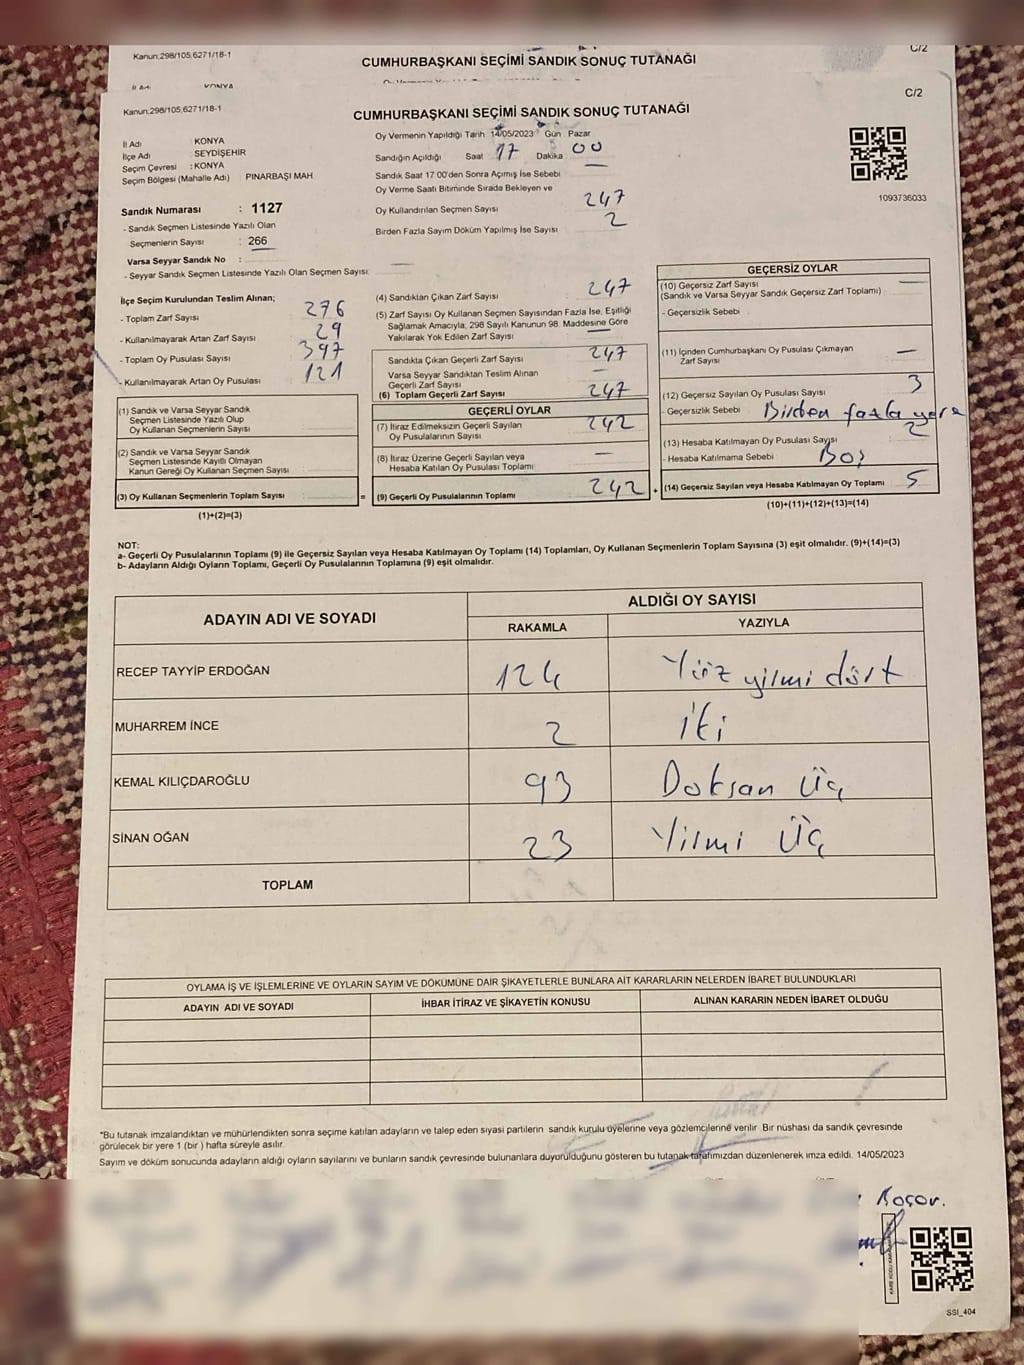 Kanun;298/105;6271/18-1
C/2
CUMHURBAŞKANI SEÇİMİ SANDIK SONUÇ TUTANAĞI
İl Adı KONYA
Kanun;298/105;6271/18-1
C/2
CUMHURBAŞKANI SEÇİMİ SANDIK SONUÇ TUTANAĞI
İl Adı : KONYA
İlçe Adı SEYDİŞEHİR
Seçim Çevresi : KONYA
Seçim Bölgesi (Mahalle Adı) PINARBAŞI MAH.
Oy Vermenin Yapıldığı Tarih 14/05/2023 Gün Pazar
Sandığın Açıldığı Saat 17 Dakika 00
Sandık Saat 17:00'den Sonra Açımış İse Sebebi —
Oy Verme Saati Bitiminde Sırada Bekleyen ve
Oy Kullandırılan Seçmen Sayısı 247
Birden Fazla Sayım Döküm Yapılmış İse Sayısı 2
1093736033
Sandık Numarası : 1127
- Sandık Seçmen Listesinde Yazılı Olan
Seçmenlerin Sayısı : 266
Varsa Seyyar Sandık No :
- Seyyar Sandık Seçmen Listesinde Yazılı Olan Seçmen Sayısı: —
İlçe Seçim Kurulundan Teslim Alınan;
- Toplam Zarf Sayısı 276
- Kullanılmayarak Artan Zarf Sayısı 29
- Toplam Oy Pusulası Sayısı 397
- Kullanılmayarak Artan Oy Pusulası 121
(1) Sandık ve Varsa Seyyar Sandık
Seçmen Listesinde Yazılı Olup
Oy Kullanan Seçmenlerin Sayısı
(2) Sandık ve Varsa Seyyar Sandık
Seçmen Listesinde Kayıtlı Olmayan
Kanun Gereği Oy Kullanan Seçmen Sayısı
(3) Oy Kullanan Seçmenlerin Toplam Sayısı
=
(1)+(2)=(3)
(4) Sandıktan Çıkan Zarf Sayısı 247
(5) Zarf Sayısı Oy Kullanan Seçmen Sayısından Fazla İse, Eşitliği
Sağlamak Amacıyla, 298 Sayılı Kanunun 98. Maddesine Göre
Yakılarak Yok Edilen Zarf Sayısı —
Sandıkta Çıkan Geçerli Zarf Sayısı 247
Varsa Seyyar Sandıktan Teslim Alınan
Geçerli Zarf Sayısı —
(6) Toplam Geçerli Zarf Sayısı 247
GEÇERLİ OYLAR
(7) İtiraz Edilmeksizin Geçerli Sayılan
Oy Pusulalarının Sayısı 242
(8) İtiraz Üzerine Geçerli Sayılan veya
Hesaba Katılan Oy Pusulası Toplamı —
(9) Geçerli Oy Pusulalarının Toplamı 242
+
GEÇERSİZ OYLAR
(10) Geçersiz Zarf Sayısı —
(Sandık ve Varsa Seyyar Sandık Geçersiz Zarf Toplamı)
- Geçersizlik Sebebi
(11) İçinden Cumhurbaşkanı Oy Pusulası Çıkmayan
Zarf Sayısı —
(12) Geçersiz Sayılan Oy Pusulası Sayısı 3
- Geçersizlik Sebebi Birden fazla yere
(13) Hesaba Katılmayan Oy Pusulası Sayısı 2
- Hesaba Katılmama Sebebi Boş
(14) Geçersiz Sayılan veya Hesaba Katılmayan Oy Toplamı 5
(10)+(11)+(12)+(13)=(14)
NOT:
a- Geçerli Oy Pusulalarının Toplamı (9) ile Geçersiz Sayılan veya Hesaba Katılmayan Oy Toplamı (14) Toplamları, Oy Kullanan Seçmenlerin Toplam Sayısına (3) eşit olmalıdır. (9)+(14)=(3)
b- Adayların Aldığı Oyların Toplamı, Geçerli Oy Pusulalarının Toplamına (9) eşit olmalıdır.
ADAYIN ADI VE SOYADI
ALDIĞI OY SAYISI
RAKAMLA YAZIYLA
RECEP TAYYİP ERDOĞAN 124 Yüz yilmi dört
MUHARREM İNCE 2 iki
KEMAL KILIÇDAROĞLU 93 Doksan Üç
SİNAN OĞAN 23 Yilmi Üç
TOPLAM
OYLAMA İŞ VE İŞLEMLERİNE VE OYLARIN SAYIM VE DÖKÜMÜNE DAİR ŞİKAYETLERLE BUNLARA AİT KARARLARIN NELERDEN İBARET BULUNDUKLARI
ADAYIN ADI VE SOYADI İHBAR İTİRAZ VE ŞİKAYETİN KONUSU ALINAN KARARIN NEDEN İBARET OLDUĞU
*Bu tutanak imzalandıktan ve mühürlendikten sonra seçime katılan adayların ve talep eden siyasi partilerin sandık kurulu üyelerine veya gözlemcilerine verilir. Bir nüshası da sandık çevresinde
görülecek bir yere 1 (bir ) hafta süreyle asılır.
Sayım ve döküm sonucunda adayların aldığı oyların sayılarını ve bunların sandık çevresinde bulunanlara duyurulduğunu gösteren bu tutanak tarafımızdan düzenlenerek imza edildi. 14/05/2023
Koçar.
SSI_404